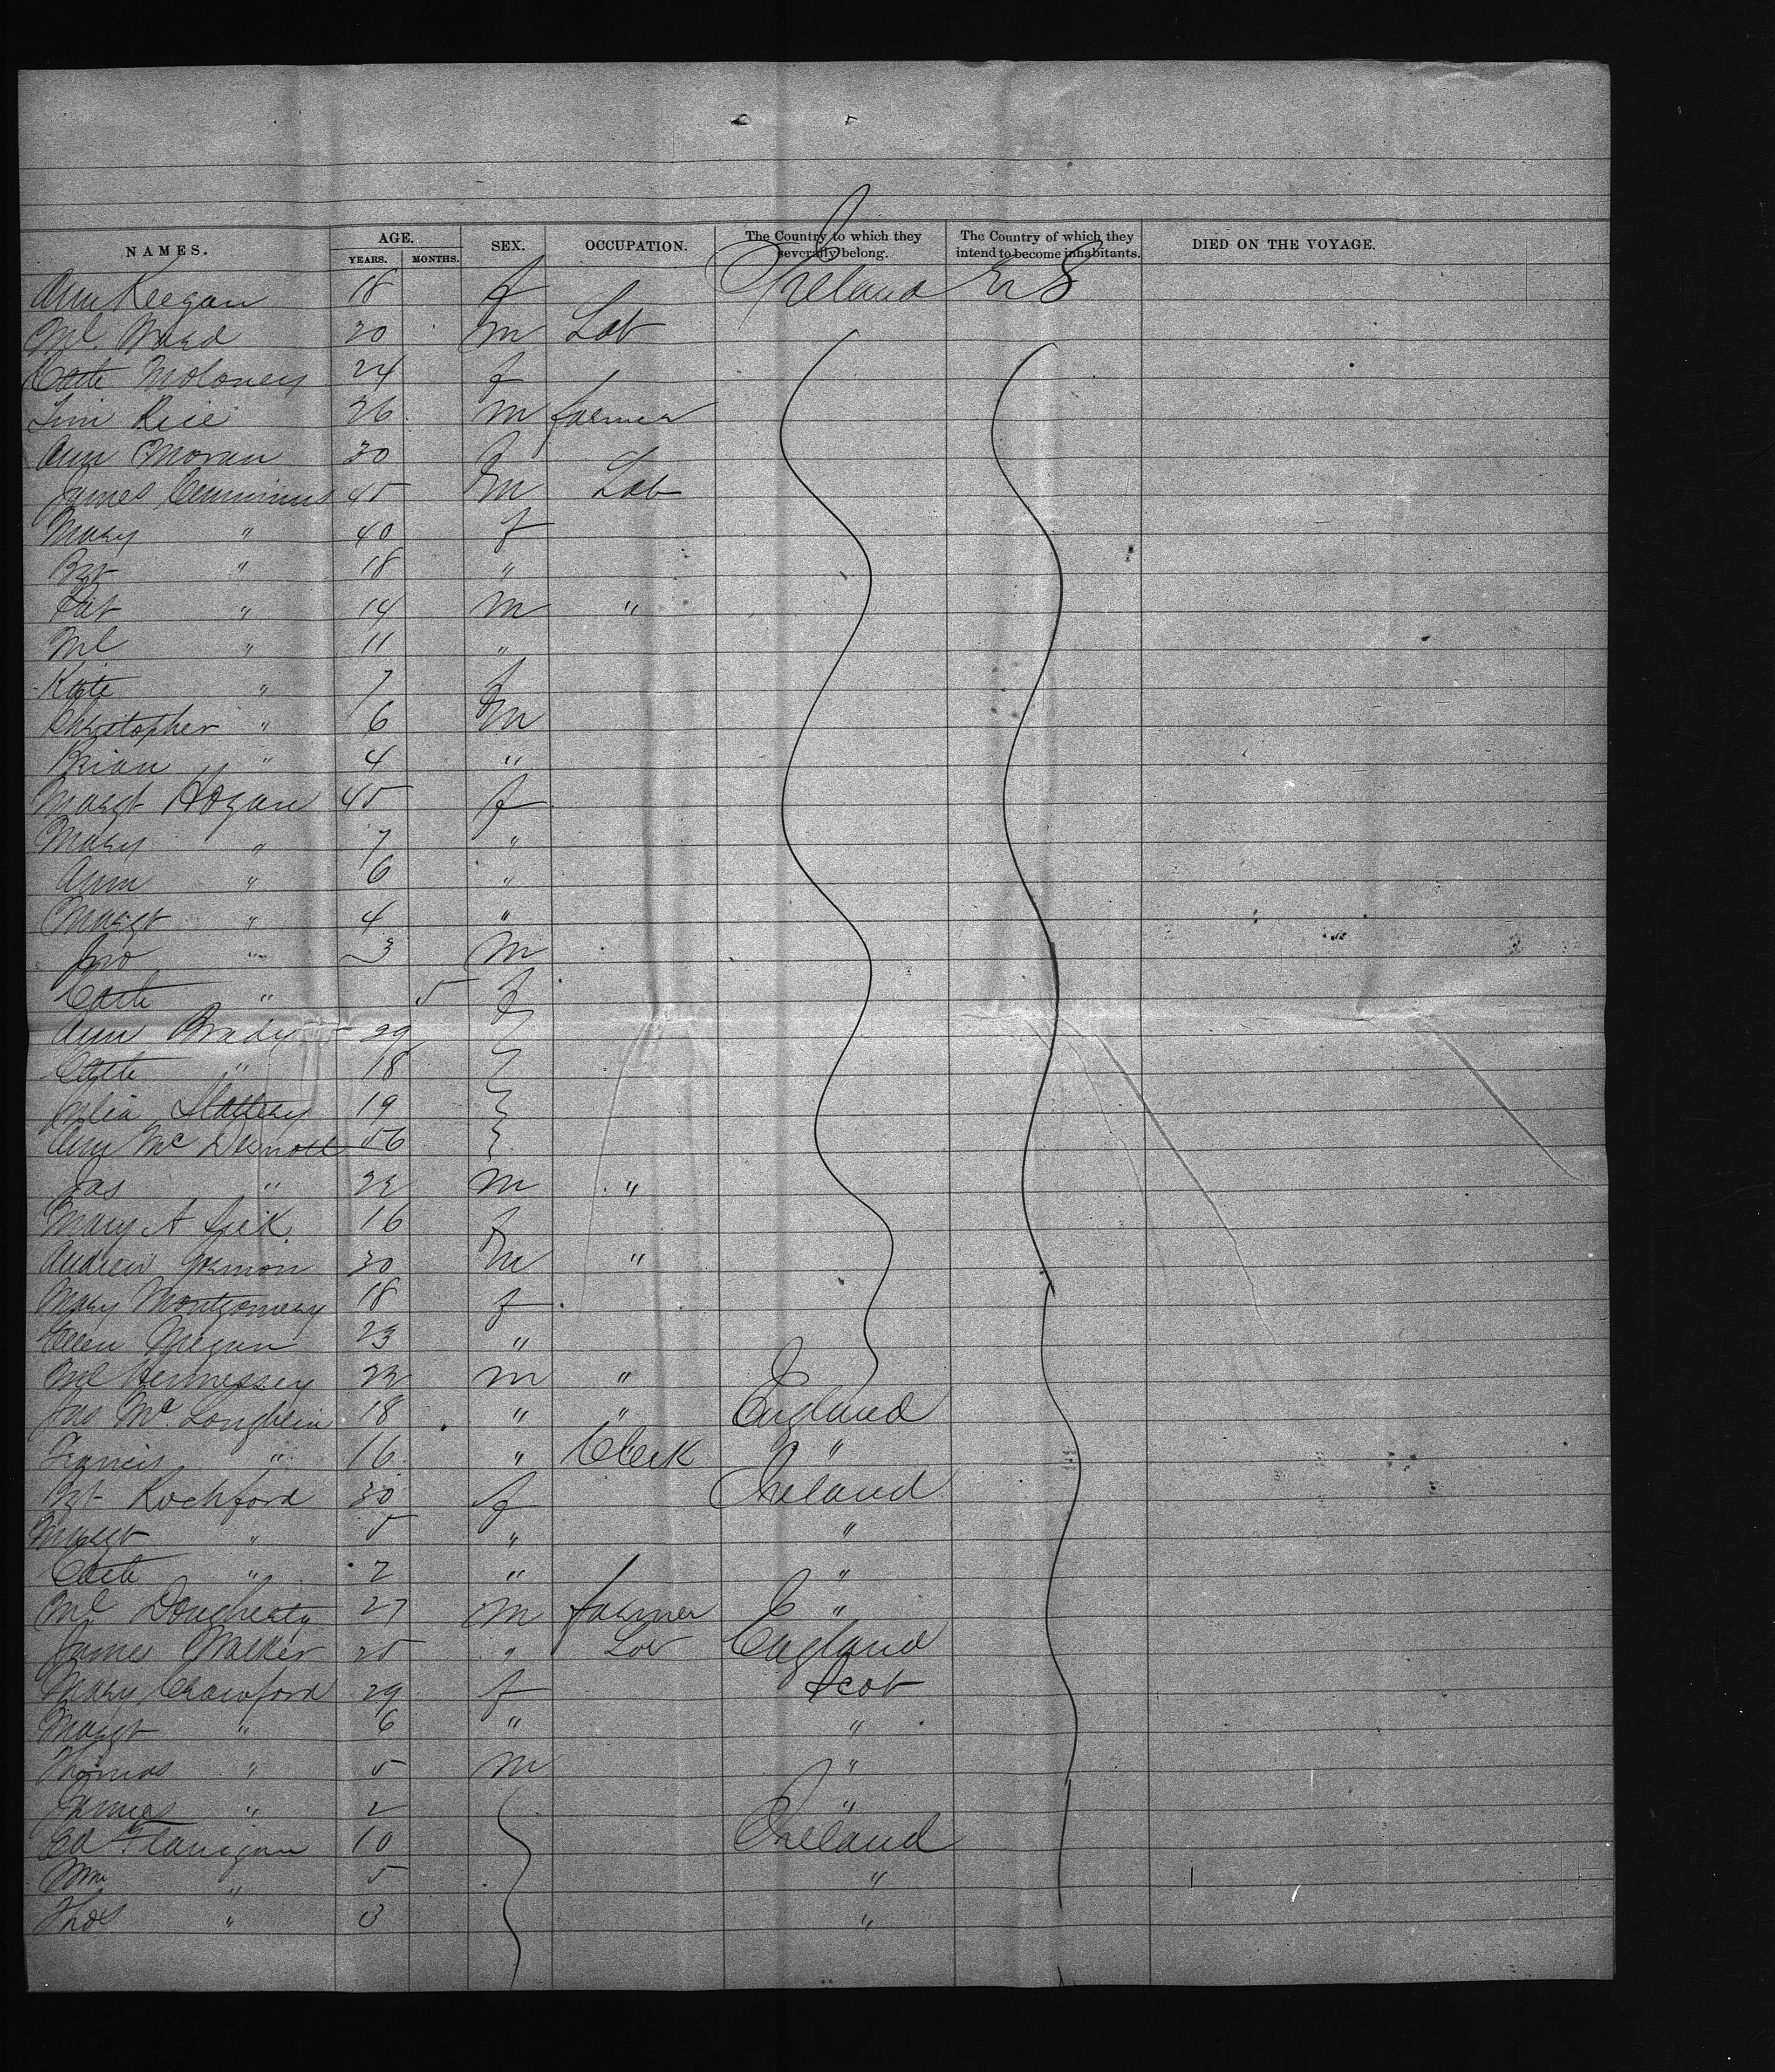 NAMES. AGE. SEX. OCCUPATION. The Country to which they severally belong. The Country of which they intend to become inhabitants. DIED ON THE VOYAGE.
YEARS. MONTHS.
Ann Keegan 18 f Ireland U S
Ml. Ward 20 m Lab
Cath Moloney 24 f
Tim Rice 26 m farmer
Ann Moran 30 f
James Cummins 45 m Lab
Mary " 40 f
Bgt " 18 "
Pat " 14 m "
Ml " 11 "
Kate " 7 f
Christopher " 6 m
Brian " 4 "
Margt Hogan 45 f
Mary " 7 "
Ann " 6 "
Margt " 4 "
Jno " 3 m
Cath " 5 f
Ann Brady 29
Cath " 18
Julia Slattery 19
Ann Mc Dermott 56
Jas " 22 m "
Mary A 16 f
Andrew Gormon 30 m "
Mary Montgomery 18 f
Ellen 23 "
Ml Hennessey 22 m "
Jas Mc Loughlin 18 " " England
Francis " 16 " Clerk "
Bgt Rochford 30 f Ireland
Margt " 5 " "
Cath " 2 " "
Ml Dougherty 27 m farmer "
James Walker 25 " Lab England
Mary Crawford 29 f Scot
Margt " 6 " "
Thomas " 5 m "
James " 2 "
Ed Flanigan 10 Ireland
Wm " 5 "
Thos " 3 "